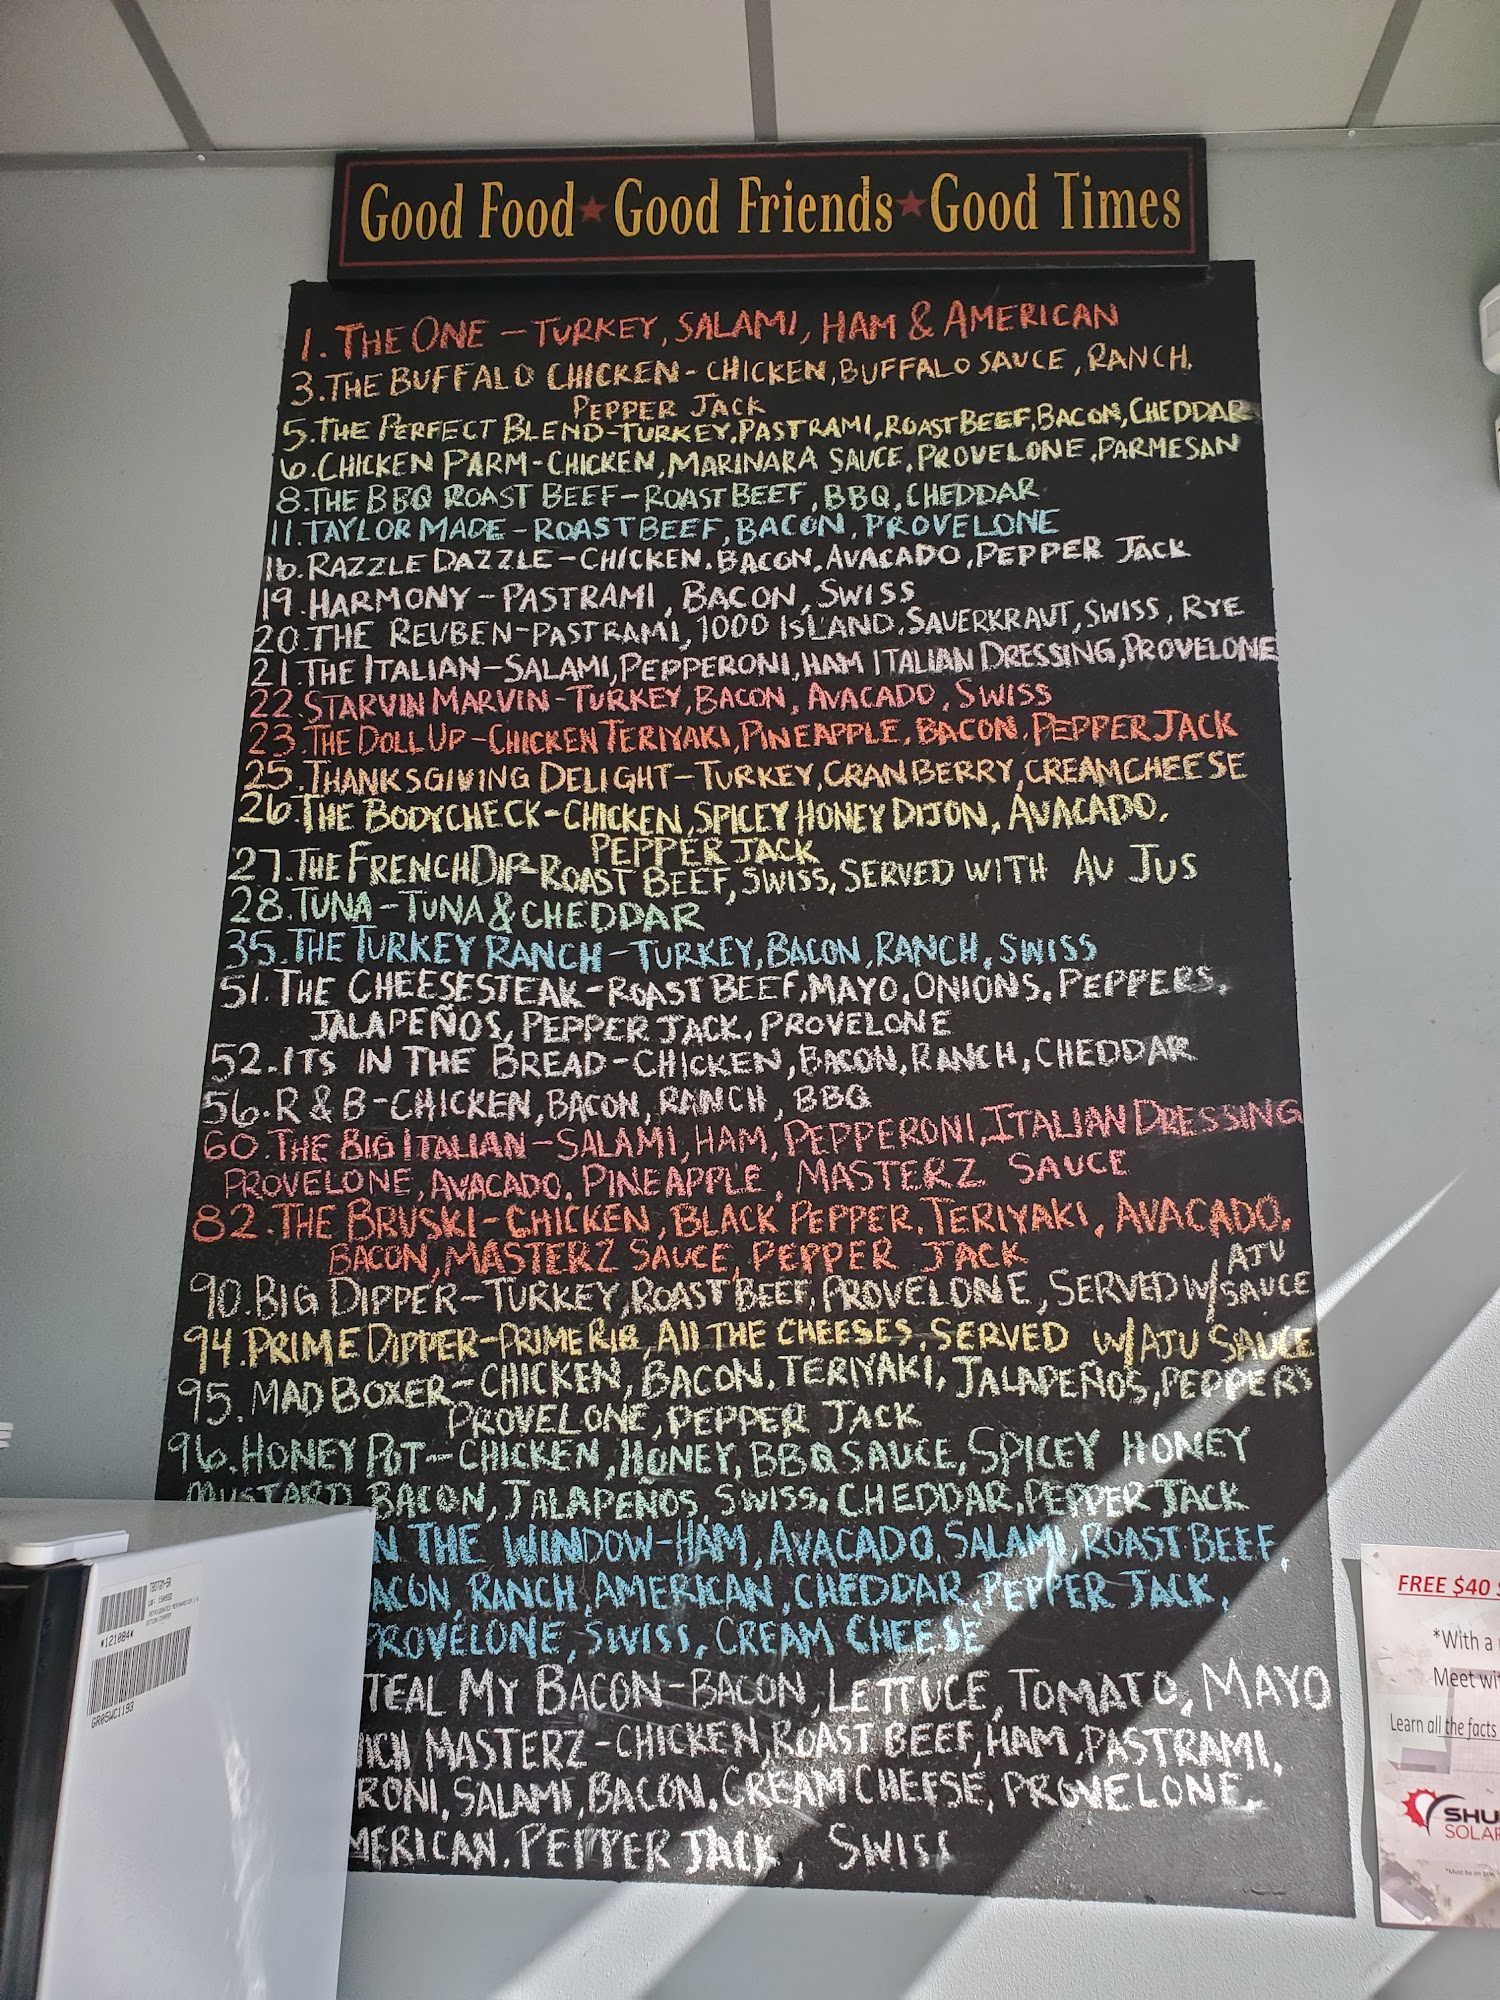 Good Food ★ Good Friends ★ Good Times
1. THE ONE - TURKEY, SALAMI, HAM & AMERICAN
3. THE BUFFALO CHICKEN - CHICKEN, BUFFALO SAUCE, RANCH,
PEPPER JACK
5. THE PERFECT BLEND - TURKEY, PASTRAMI, ROAST BEEF, BACON, CHEDDAR
6. CHICKEN PARM - CHICKEN, MARINARA SAUCE, PROVELONE, PARMESAN
8. THE BBQ ROAST BEEF - ROAST BEEF, BBQ, CHEDDAR
11. TAYLOR MADE - ROAST BEEF, BACON, PROVELONE
16. RAZZLE DAZZLE - CHICKEN, BACON, AVACADO, PEPPER JACK
19. HARMONY - PASTRAMI, BACON, SWISS
20. THE REUBEN - PASTRAMI, 1000 ISLAND, SAUERKRAUT, SWISS, RYE
21. THE ITALIAN - SALAMI, PEPPERONI, HAM ITALIAN DRESSING, PROVELONE
22. STARVIN MARVIN - TURKEY, BACON, AVACADO, SWISS
23. THE DOLL UP - CHICKEN TERIYAKI, PINEAPPLE, BACON, PEPPER JACK
25. THANKSGIVING DELIGHT - TURKEY, CRANBERRY, CREAM CHEESE
26. THE BODYCHECK - CHICKEN, SPICEY HONEY DIJON, AVACADO,
PEPPER JACK
27. THE FRENCH DIP - ROAST BEEF, SWISS, SERVED WITH AU JUS
28. TUNA - TUNA & CHEDDAR
35. THE TURKEY RANCH - TURKEY, BACON, RANCH, SWISS
51. THE CHEESESTEAK - ROAST BEEF, MAYO, ONIONS, PEPPERS,
JALAPEÑOS, PEPPER JACK, PROVELONE
52. ITS IN THE BREAD - CHICKEN, BACON, RANCH, CHEDDAR
56. R & B - CHICKEN, BACON, RANCH, BBQ
60. THE BIG ITALIAN - SALAMI, HAM, PEPPERONI, ITALIAN DRESSING
PROVELONE, AVACADO, PINEAPPLE, MASTERZ SAUCE
82. THE BRUSKI - CHICKEN, BLACK PEPPER, TERIYAKI, AVACADO,
BACON, MASTERZ SAUCE, PEPPER JACK
90. BIG DIPPER - TURKEY, ROAST BEEF, PROVELONE, SERVED W/ AJU SAUCE
94. PRIME DIPPER - PRIME RIB, All THE CHEESES, SERVED W/ AJU SAUCE
95. MAD BOXER - CHICKEN, BACON, TERIYAKI, JALAPEÑOS, PEPPERS
PROVELONE, PEPPER JACK
96. HONEY POT - CHICKEN, HONEY, BBQ SAUCE, SPICEY HONEY
MUSTARD BACON, JALAPEÑOS, SWISS, CHEDDAR, PEPPER JACK
N THE WINDOW - HAM, AVACADO, SALAMI, ROAST BEEF,
ACON, RANCH, AMERICAN, CHEDDAR, PEPPER JACK,
PROVELONE, SWISS, CREAM CHEESE
TEAL MY BACON - BACON, LETTUCE, TOMATO, MAYO
ICH MASTERZ - CHICKEN, ROAST BEEF, HAM, PASTRAMI,
RONI, SALAMI, BACON, CREAM CHEESE, PROVELONE,
MERICAN, PEPPER JACK, SWISS
*121084*
GR05WC1193
FREE $40
*With a
Meet wi
Learn all the facts
SHU
SOLAR